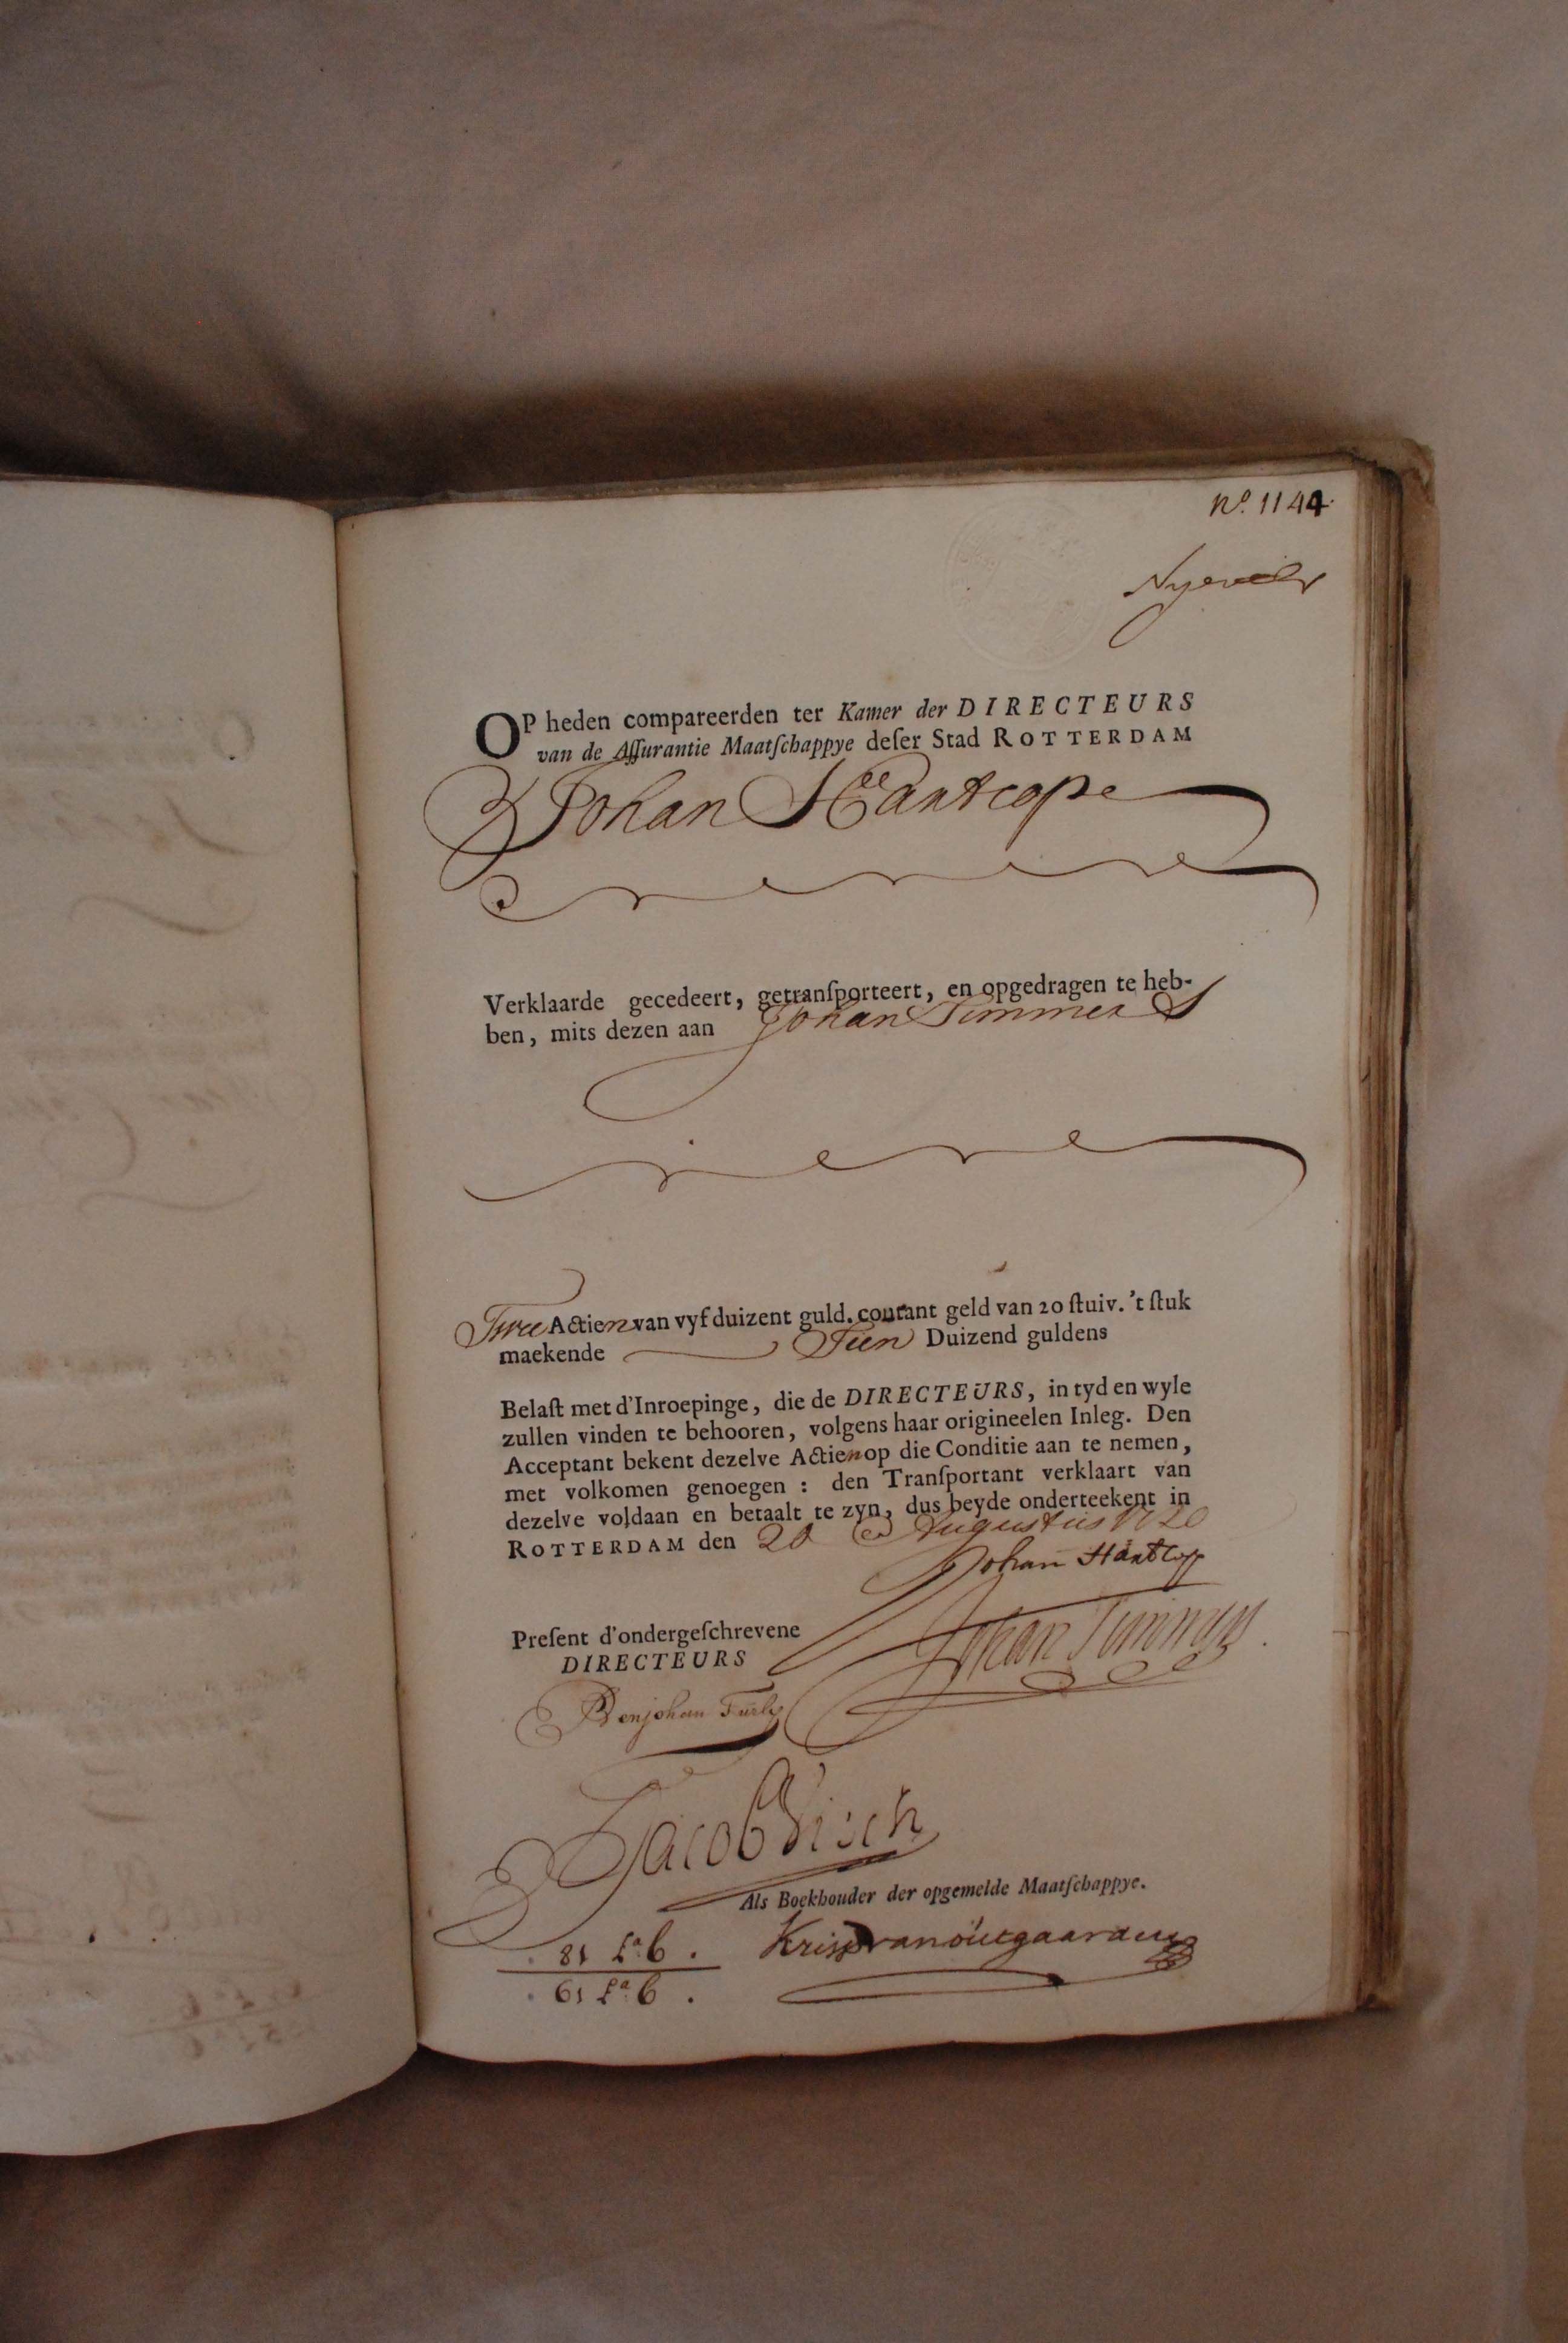 No. 1144
OP heden compareerden ter Kamer der DIRECTEURS
van de Aſſurantie Maatſchappye deſer Stad ROTTERDAM
Johan Hantcope
Verklaarde gecedeert, getranſporteert, en opgedragen te heb-
ben, mits dezen aan Johan Timmers
Twee Actien van vyf duizent guld. courant geld van 20 ſtuiv. 't ſtuk
maekende Tien Duizend guldens
Belaſt met d'Inroepinge, die de DIRECTEURS, in tyd en wyle
zullen vinden te behooren, volgens haar origineelen Inleg. Den
Acceptant bekent dezelve Actien op die Conditie aan te nemen,
met volkomen genoegen : den Tranſportant verklaart van
dezelve voldaan en betaalt te zyn, dus beyde onderteekent in
ROTTERDAM den 20 Augustus 1720
Johan Hantcop
Johan Timmers
Preſent d'ondergeſchrevene
DIRECTEURS
Benjohan Furly
Jacob Visch
Als Boekhouder der opgemelde Maatſchappye.
Kris van outgaarden